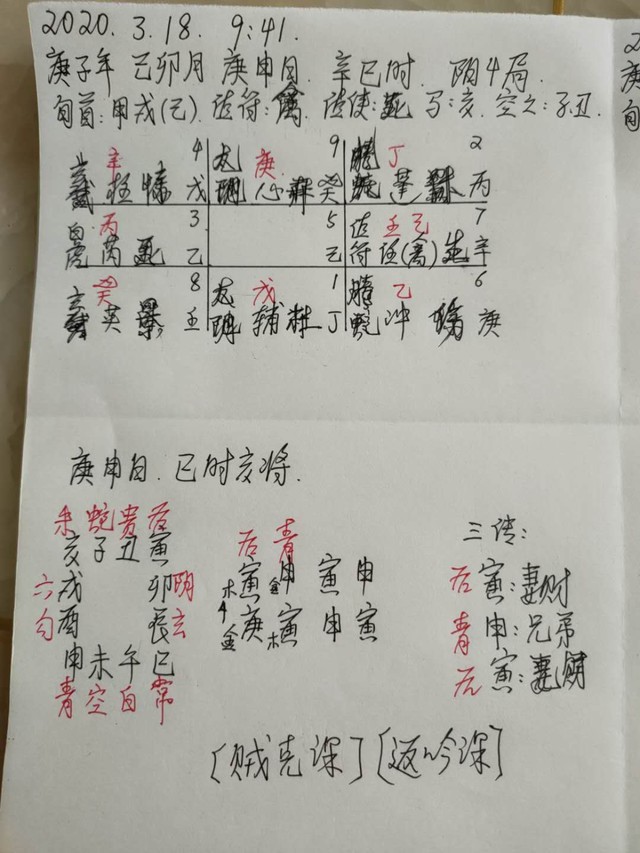 2020. 3. 18. 9:41.
庚子年 己卯月 庚申日. 辛巳时. 阴4局.
旬首:甲戌(己). 值符:禽. 值使:死 马:亥. 空亡:子丑.
辛 4 庚 9 丁 2
柱 戊 心 癸 蓬 休 丙
白 丙 3 5 值 壬己 7
虎 芮 乙 己 符 任(禽) 生 辛
癸 8 戊 1 乙 6
英 景 壬 辅 杜 丁 蛇 冲 伤 庚
庚申日. 巳时亥将.
朱 蛇 贵 后
亥 子 丑 寅
六 戌 卯 阴
勾 酉 辰 玄
申 未 午 巳
青 空 白 常
后 青
木 寅 金 申 寅 申
金 庚 木 寅 申 寅
三传:
后 寅:妻财
青 申:兄弟
后 寅:妻财
[贼克课] [返吟课]